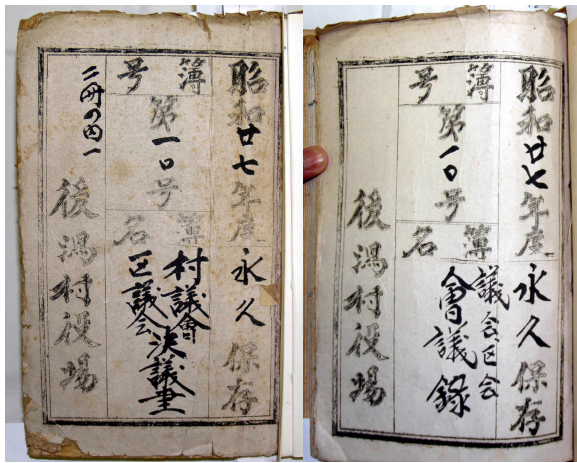 昭和廿七年度永久保存
簿号
第一〇号
簿名
村議會
区議会
決議書
後潟村役場
二冊の内一
昭和廿七年度永久保存
簿号
第一〇号
簿名
議会区会
會議錄
後潟村役場